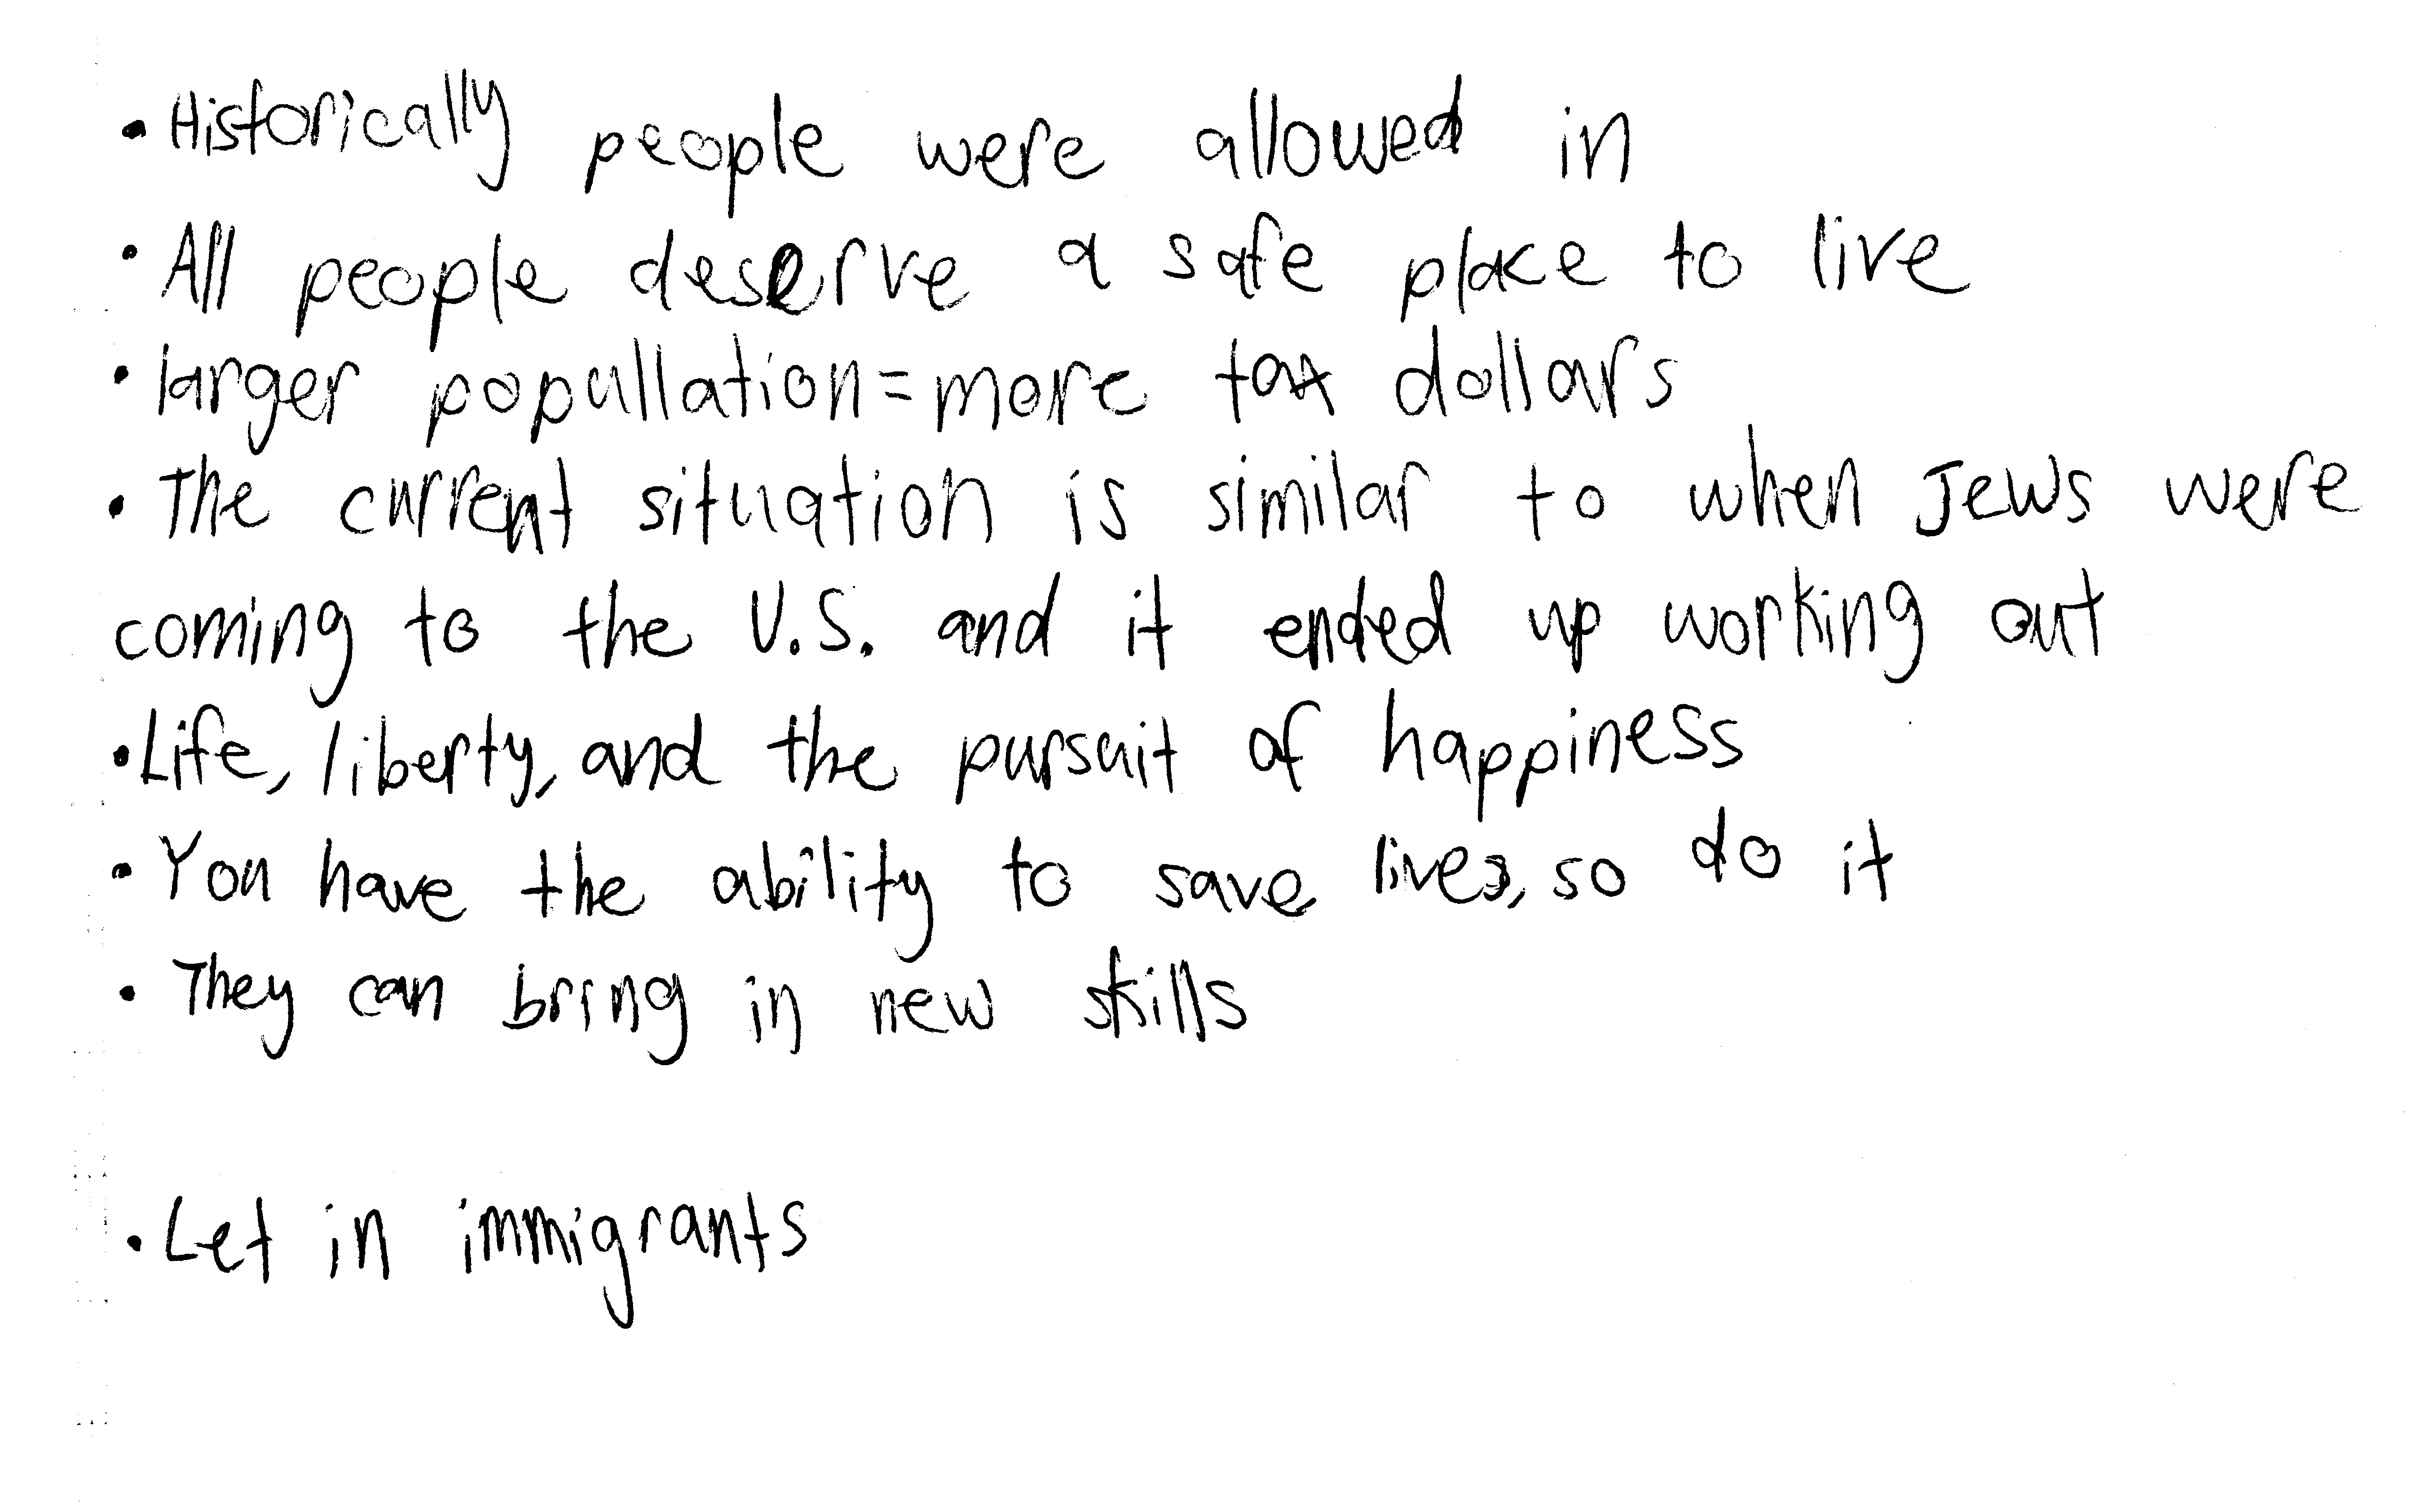 • Historically people were allowed in
• All people deserve a safe place to live
• larger popullation=more tax dollars
• The current situation is similar to when Jews were
coming to the U.S. and it ended up working out
• Life, liberty, and the pursuit of happiness
• You have the ability to save lives, so do it
• They can bring in new skills
• Let in immigrants